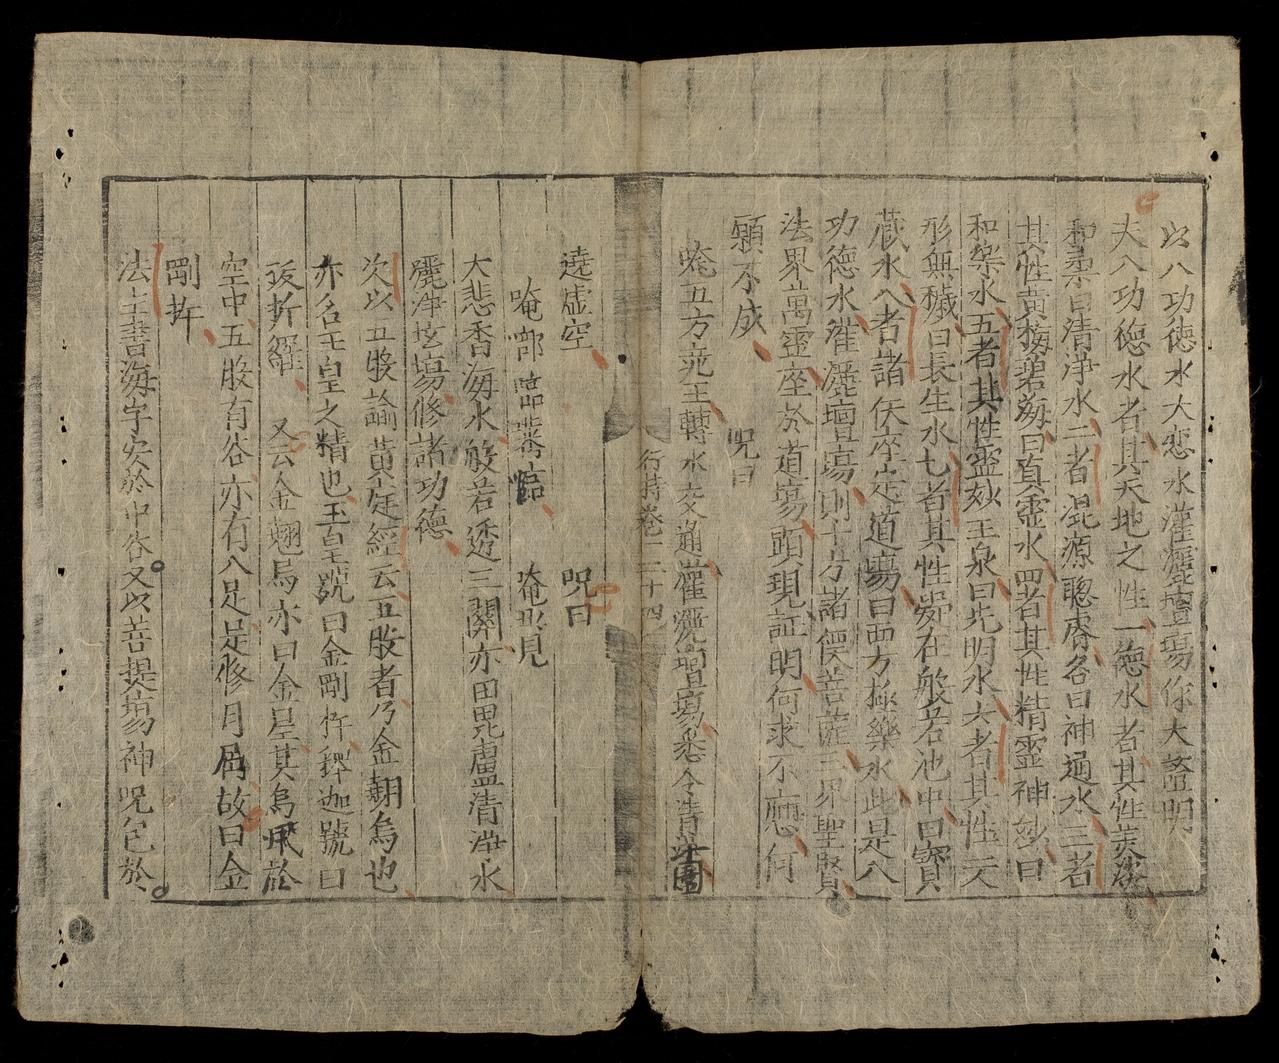 以八功德水大悲水灌灑壇塲你大證明
夫八功德水者其天地之性一德水者其性美
和柔曰清淨水二者混源聰睿名曰神通水三者
其性黃梅碧海曰真靈水四者其性精靈神妙曰
和樂水五者其性靈妙玉泉曰光明水六者其性元
形無穢曰長生水七者其性舜在般若池中曰寶
藏水八者諸天卒定道塲曰西方極樂水此是八
功德水灌灑壇塲則十方諸僊菩薩三界聖賢
法界萬靈座於道塲顕現証明何求不應何
願不成 呪曰
唵五方梵王轉水交通灌洗壇塲悉令清淨圍
行持卷二二十四
遶虛空 呪曰
唵啷㗛囉㗛 唵毗見
大悲香海水般若透三關亦田毘盧清淨水
灑淨垓塲修諸功德
次以五股論黃庭經云五股者乃金翅烏也
亦名玉皇之精也玉皇號曰金剛杵釋迦號曰
跋折羅 又云金翅烏亦曰金星其烏爪於
空中五股有谷亦有八足足修月屑故曰金
剛杵
法主書海字安於中谷又以菩提塲神呪包於